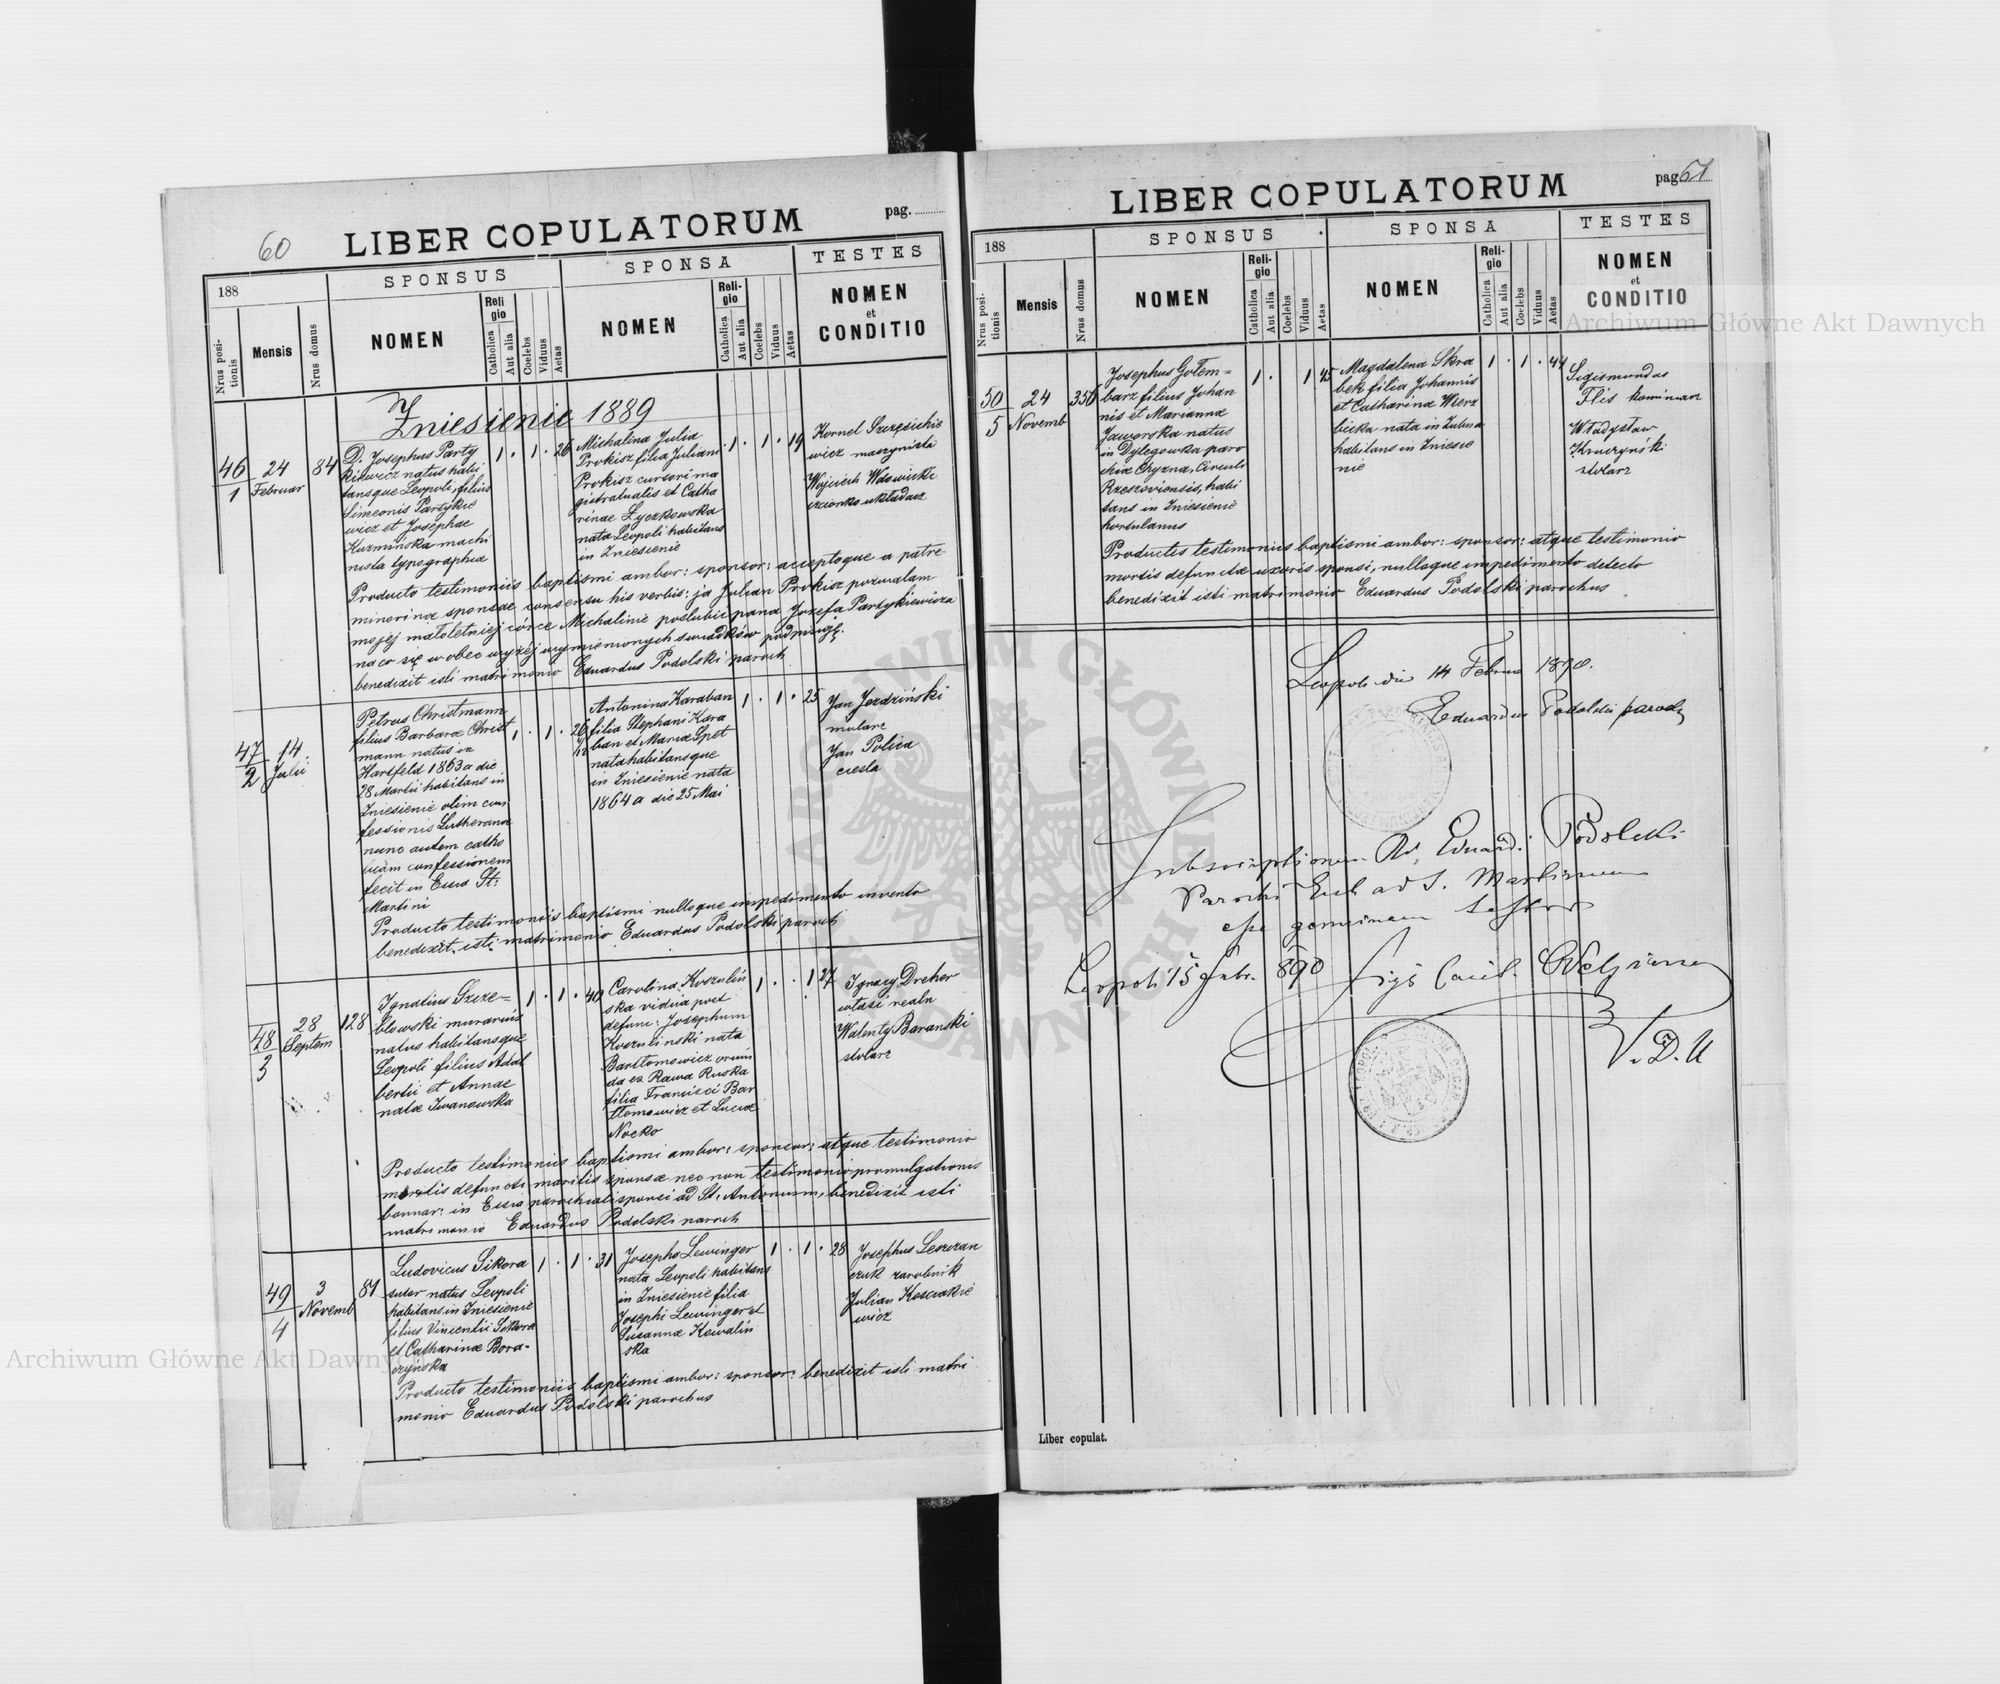 60
LIBER COPULATORUM
pag.
188
SPONSUS
SPONSA
TESTES
Nrus positionis
Mensis
Nrus domus
NOMEN
Religio
Catholica
Aut alia
Coelebs
Viduus
Aetas
NOMEN
Religio
Catholica
Aut alia
Coelebs
Viduus
Aetas
NOMEN
et
CONDITIO
Zniesienie 1889
46
1
24
Februar
84
D. Josephus Party
kiewicz natus habi
tansque Leopoli, filius
Simeonis Partykie
wicz et Josephae
Kuzmińska machi
nista typographiae
1 . 1 . 26
Michalina Julia
Prokisz filia Juliani
Prokisz cursori ma
gistratualis et Catha
rinae Zyczkowska
nata Leopoli habitans
in Zniesienie
1 . 1 . 19
Kornel Szczęsikie
wicz maszynista
Wojciech
układacz
Producto testimoniis baptismi ambor: sponsor: acceptoque a patre
minorinae sponsae consensu his verbis: ja Julian Prokisz pozwalam
mojej małoletniej córce Michalinie poślubić pana Józefa Partykiewicza
na co się w obec wyżej wymienionych swiadków podpisuję.
benedixit isti matrimonio Eduardus Podolski paroch
47
2
14
Julii
Petrus Christmann
filius Barbarae Christ
mann natus in
Hartfeld 1863 a die
28 Martii habitans in
Zniesienie olim con
fessionis Lutheranae
nunc autem catho
licam confessionem
fecit in Eccia St:
Martini
1 . 1 . 26
Antonina Karaban
filia Stephani Kara
ban et Maria Spet
nata habitansque
in Zniesienie nata
1864 a die 25 Mai
1 . 1 . 25
Jan Jezdziński
mularz
Jan Polica
ciesla
Producto testimoniis baptismi nulloque impedimento invento
benedixit isti matrimonio Eduardus Podolski paroch
48
3
28
Septem
128
Ignatius Szcze=
błowski murarius
natus habitansque
Leopoli filius Adal
berti et Annae
natae Iwanowska
1 . 1 . 40
Carolina Kozuliń
ska vidua post
defunc: Josephum
Kozulinski nata
Bartłomowicz oriun
da ex Rawa Ruska
filia Francisci Bar
tłomowicz et Luciae
Nocko
1 . . 1 27
Ignacy Dreher
właści realn
Walenty Baranski
stolarz
Producto testimoniis baptismi ambor: sponsor: atque testimonio
mortis defuncti maritis sponsae nec non testimonio promulgationis
bannor: in Eccia parochiali sponsi ad St: Antonium, benedixit isti
matrimonio Eduardus Podolski paroch
49
4
3
Novemb
81
Ludovicus Sikora
sutor natus Leopoli
habitans in Zniesienie
filius Vincentii Sikora
et Catharinae Bora-
czyńska
1 . 1 . 31
Josepha Lewinger
nata Leopoli habitans
in Zniesienie filia
Josephi Lewinger et
Susannae Kowaliń
ska
1 . 1 . 28
Josephus Leszczan
czuk zarobnik
Julian Kosciakie
wicz
Producto testimoniis baptismi ambor: sponsor: benedixit isti matri
monio Eduardus Podolski parochus
LIBER COPULATORUM
pag 61
188
SPONSUS
SPONSA
TESTES
Nrus positionis
Mensis
Nrus domus
NOMEN
Religio
Catholica
Aut alia
Coelebs
Viduus
Aetas
NOMEN
Religio
Catholica
Aut alia
Coelebs
Viduus
Aetas
NOMEN
et
CONDITIO
Archiwum Główne Akt Dawnych
50
5
24
Novemb
356
Josephus Gołem=
barz filius Johan
nis et Marianna
Jaworska natus
in Dylegowka paro
chiae Chyzna, Circuli
Rzeszoviensis, habi
tans in Zniesienie
hortulanus
1 . 1 45
Magdalena Skra
bek filia Johannis
et Catharinae Wierz
bicka nata in
habitans in Zniesie
nie
1 . 1 . 44
Sigismundus
Flis kominiarz
Władysław
Kruczyński
stolarz
Productis testimoniis baptismi ambor: sponsor: atque testimonio
mortis defunctae uxoris sponsi, nulloque impedimento detecto
benedixit isti matrimonio Eduardus Podolski parochus
Leopoli die 14 Februar 1890.
Eduardus Podolski paroch
Subscriptionem Rd. Eduardi Podolski
Parochi Eccl ad S. Martinum
esse genuinam testor
Leopoli 15 Febr. 890
V. D. U
Liber copulat.
ARCHIWUM GŁÓWNE AKT DAWNYCH
Archiwum Główne Akt Dawnych